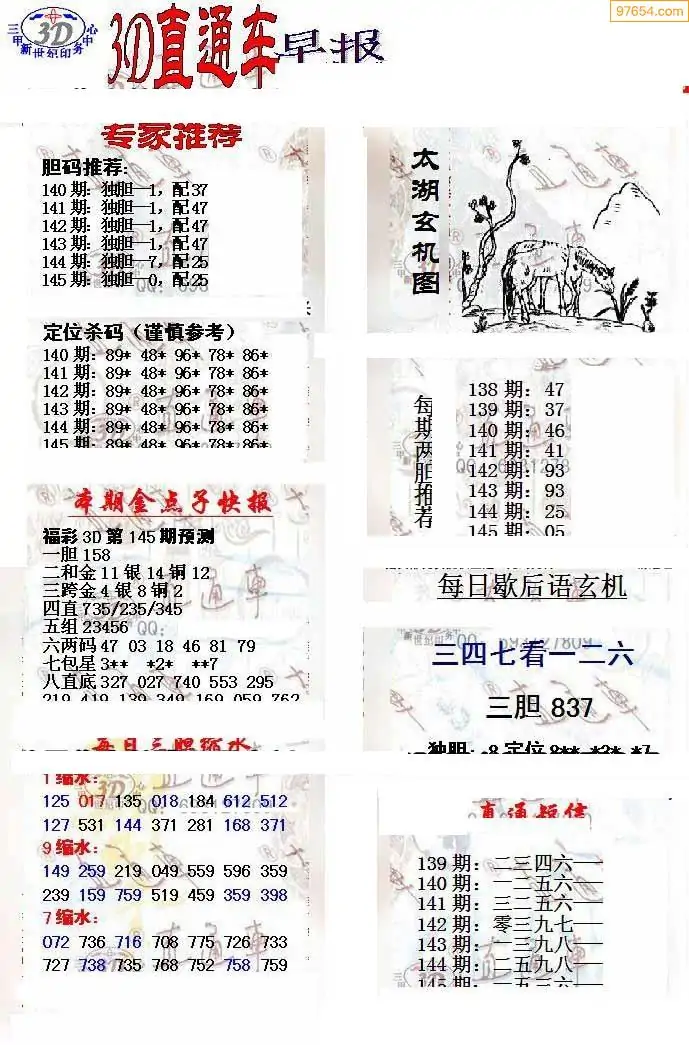 97654.com
三甲 3D 中心
新世纪印务
3D直通车早报
专家推荐
胆码推荐:
140期: 独胆—1, 配37
141期: 独胆—1, 配47
142期: 独胆—1, 配47
143期: 独胆—1, 配47
144期: 独胆—7, 配25
145期: 独胆—0, 配25
定位杀码（谨慎参考）
140期: 89* 48* 96* 78* 86*
141期: 89* 48* 96* 78* 86*
142期: 89* 48* 96* 78* 86*
143期: 89* 48* 96* 78* 86*
144期: 89* 48* 96* 78* 86*
145期: 89* 48* 96* 78* 86*
本期金点子快报
福彩3D第145期预测
一胆158
二和金11银14铜12
三跨金4银8铜2
四直735/235/345
五组23456
六两码47 03 18 46 81 79
七包星3** *2* **7
八直底327 027 740 553 295
219 419 139 349 169 059 762
每日三胆缩水
1缩水:
125 017 135 018 184 612 512
127 531 144 371 281 168 371
9缩水:
149 259 219 049 559 596 359
239 159 759 519 459 359 398
7缩水:
072 736 716 708 775 726 733
727 738 735 768 752 758 759
太湖玄机图
每期两胆推荐
138期: 47
139期: 37
140期: 46
141期: 41
142期: 93
143期: 93
144期: 25
145期: 05
每日歇后语玄机
三四七看一二六
三胆 837
独胆: 8 定位 8** *3* *7
直通短信
139期: 二三四六一
140期: 一二五六一
141期: 三二五六一
142期: 零三九七一
143期: 一三九八一
144期: 二五九八一
145期: 一五三六一